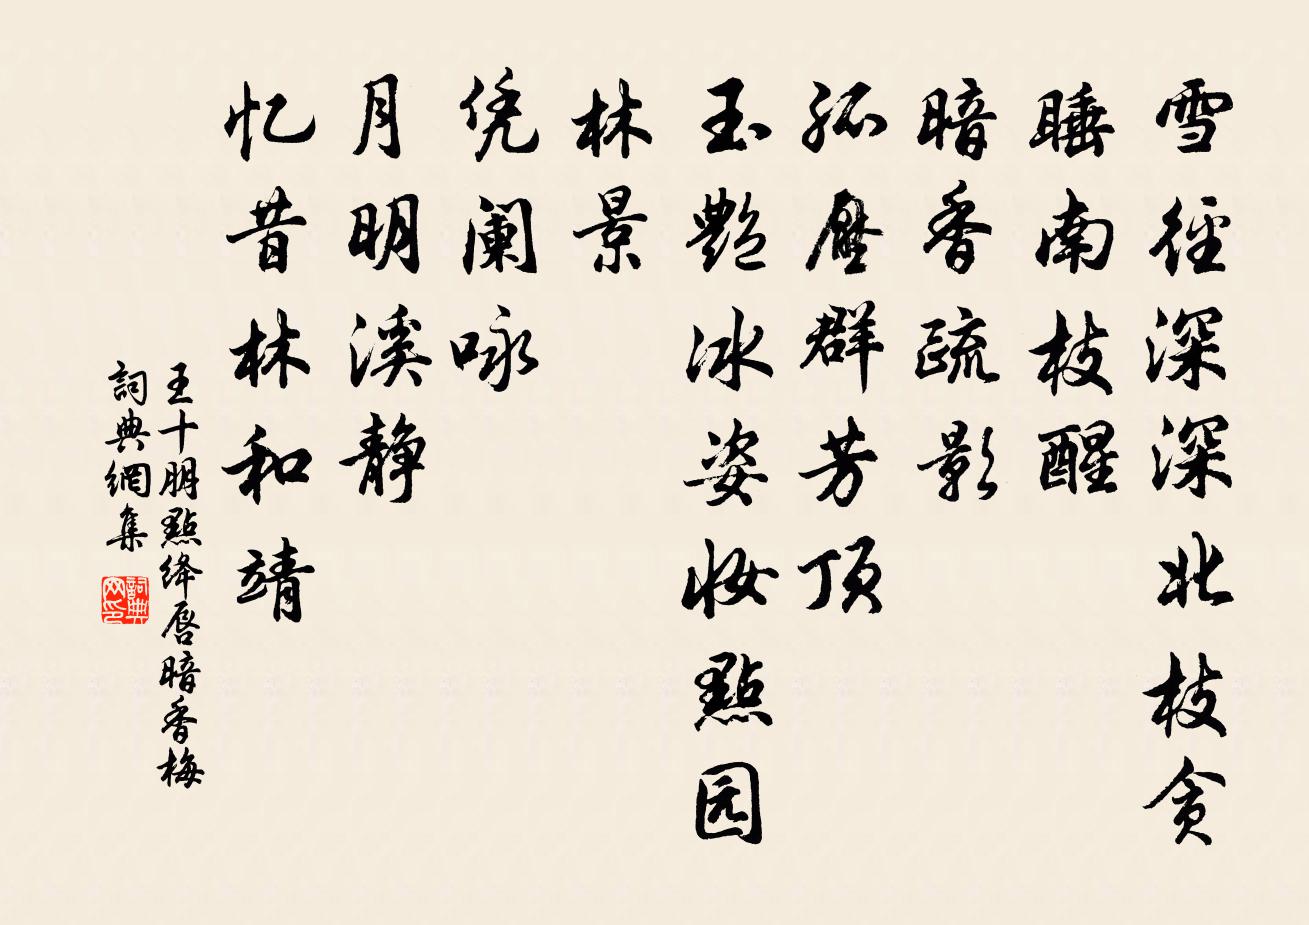 雪径深深北枝贪
睡南枝醒
暗香疏影
孤壓群芳顶
玉艷冰姿妆點园
林景
凭阑咏
月明溪静
忆昔林和靖
王十朋點绛唇暗香梅
詞典網集
詞典网印